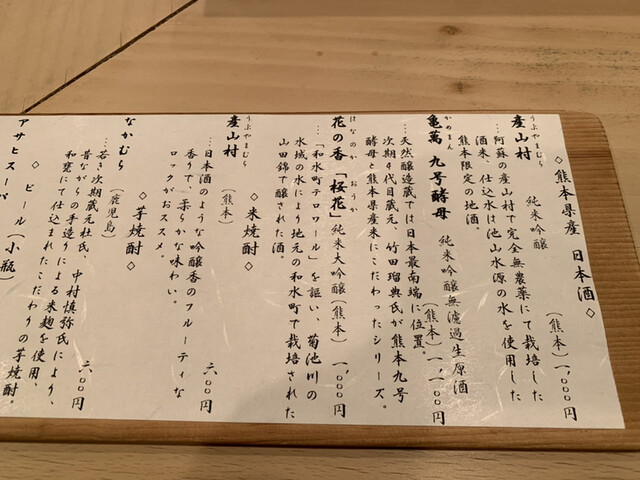 ◇熊本県産 日本酒◇
うぶやまむら
産山村 純米吟醸 (熊本)一,〇〇〇円
…阿蘇の産山村で完全無農薬にて栽培した
酒米、仕込水は池山水源の水を使用した
熊本限定の地酒。
かめまん
亀萬 九号酵母 純米吟醸無濾過生原酒
(熊本)一,一〇〇円
…天然醸造蔵では日本最南端に位置。
次期4代目蔵元、竹田瑠典氏が熊本九号
酵母と熊本県産米にこだわったシリーズ。
はなのか おうか
花の香「桜花」 純米大吟醸(熊本)一,〇〇〇円
…「和水町テロワール」を謳い、菊池川の
水域の水により地元の和水町で栽培された
山田錦で醸された酒。
◇米焼酎◇
うぶやまむら
産山村 (熊本) 六〇〇円
…日本酒のような吟醸香のフルーティな
香りで、柔らかな味わい。
ロックがおススメ。
◇芋焼酎◇
なかむら (鹿児島) 六〇〇円
…若き次期蔵元杜氏、中村慎弥氏により、
昔ながらの手造りによる米麹を使用、
和甕にて仕込まれたこだわりの芋焼酎。
◇ビール(小瓶)
アサヒスーパ